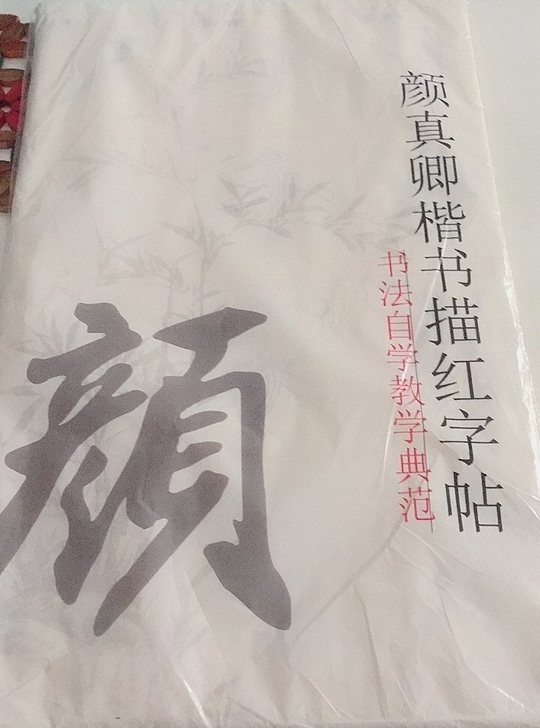 颜真卿楷书描红字帖
书法自学教学典范
顔